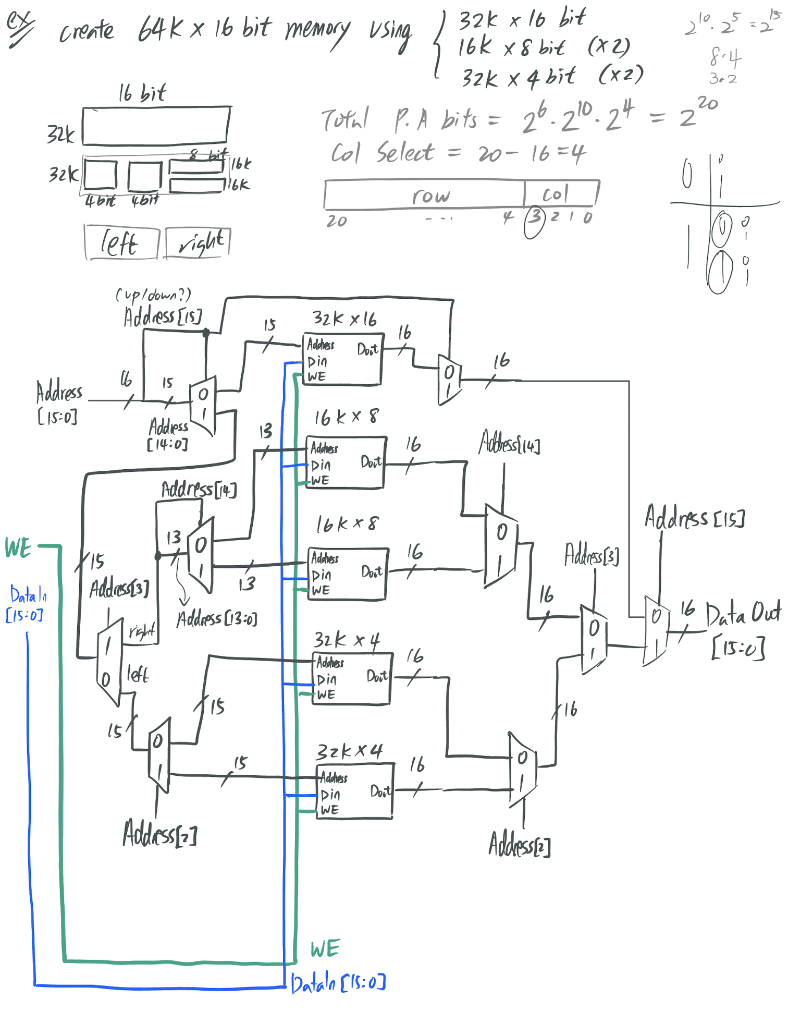 ex create 64K x 16 bit memory using
32K x 16 bit
16K x 8 bit (x2)
32K x 4 bit (x2)
2^10 · 2^5 = 2^15
8·4
3·2
16 bit
32K
32K
8 bit
16K
16K
4bit 4bit
left right
Total P.A bits = 2^6 · 2^10 · 2^4 = 2^20
Col Select = 20 - 16 = 4
row col
20 --- 4 3 2 1 0
0 0
1
1 0 0
1
1 0
1
(up/down?)
Address[15]
Address
[15:0]
16
15
Address
[14:0]
0
1
15
32K x 16
Address
Din
WE
Dout
16
0
1
16
13
16K x 8
Address
Din
WE
Dout
16
Address[14]
0
1
Address[14]
13
0
1
13
Address[13:0]
16K x 8
Address
Din
WE
Dout
16
WE
15
DataIn
[15:0]
Address[3]
right
1
0
left
15
Address[3]
16
0
1
Address[15]
0
1
16
Data Out
[15:0]
32K x 4
Address
Din
WE
Dout
16
15
0
1
Address[2]
15
32K x 4
Address
Din
WE
Dout
16
0
1
16
Address[2]
WE
DataIn[15:0]